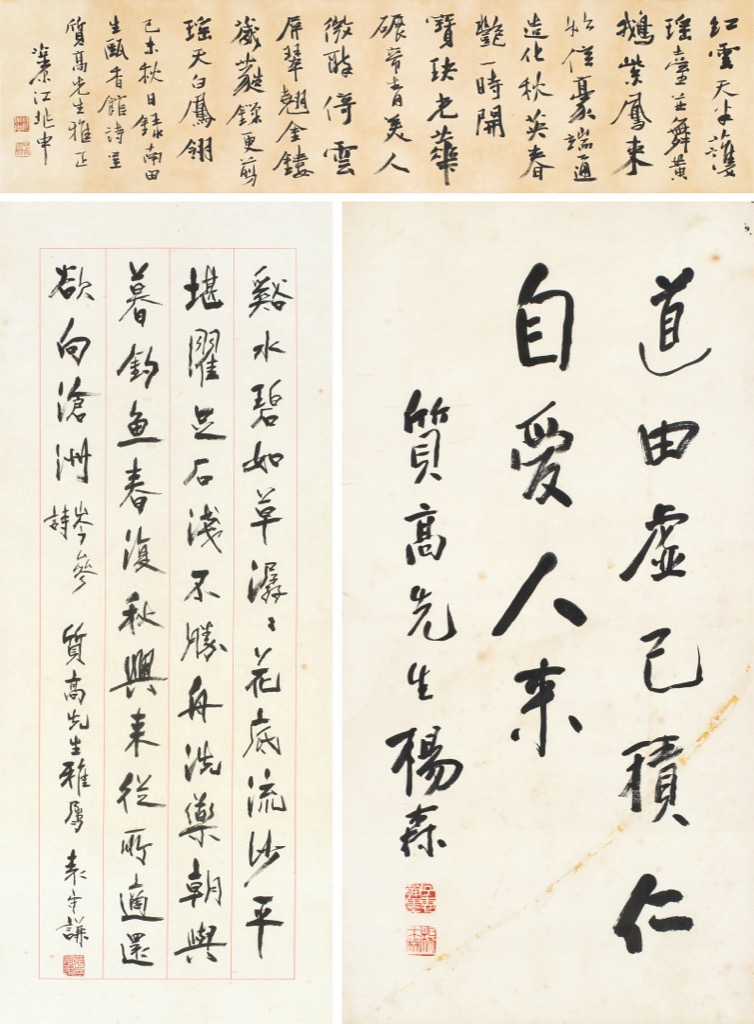 紅雲天半護
瑤臺上舞黃
鵝紫鳳來
始信豪端通
造化秋英春
艷一時開
寶玦光華
碾帝青美人
微醉倚雲
屏翠翹金鏤
葳蕤鏁更剪
瑤天白鳳翎
己未秋日錄南田
生甌香館詩呈
質高先生雅正
江兆申
谿水碧如草潺〻花底流沙平
堪濯足石淺不勝舟洗藥朝與
暮釣魚春復秋興來從所適還
欲向滄洲 岑參詩 質高先生雅屬 袁守謙
道由虛己積仁
自愛人來
質高先生 楊森